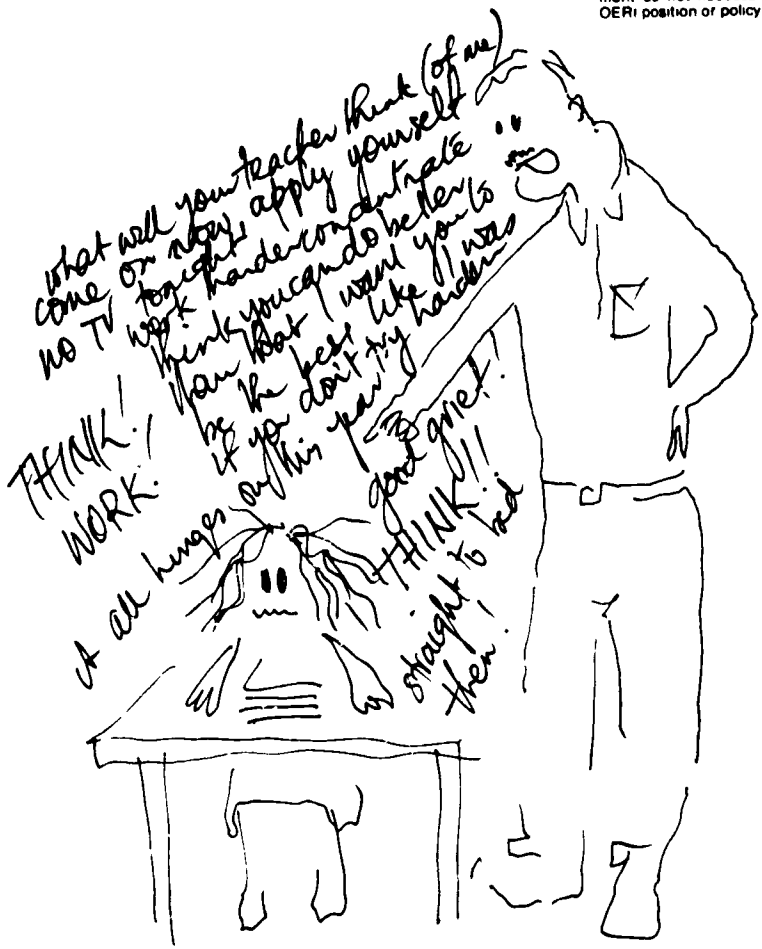 OERI position or policy
what will your teacher think (of me)
come on now, apply yourself
no TV tonight! concentrate
work harder
think you can do better
than that I want you to
be the best like I was
if you don't try harder
it all hinges on this year
THINK!
WORK!
good grief!
THINK!!
straight to bed
then!